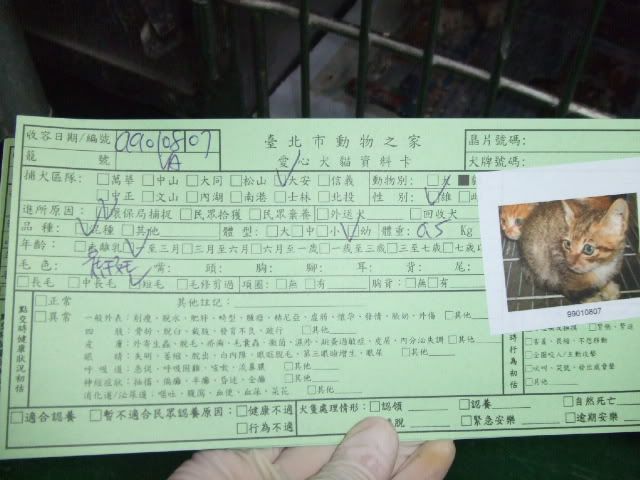 收容日期/編號 99010807 臺北市動物之家 晶片號碼:
籠 號 愛心犬貓資料卡 犬牌號碼:
捕犬區隊: □萬華 □中山 □大同 □松山 □大安 □信義 動物別: □犬
□中正 □文山 □內湖 □南港 □士林 □北投 性 別: □雄
進所原因: □環保局捕捉 □民眾拾獲 □民眾棄養 □外送犬 □回收犬
品 種: □混種 □其他 體型: □大 □中 □小 □幼 體重: 0.5 Kg
年齡: □未離乳 □至三月 □三月至六月 □六月至一歲 □一歲至三歲 □三至七歲 □七歲以
毛 色: 嘴: 頭: 胸: 腳: 背: 尾:
□長毛 □中長毛 □短毛 □毛修剪過 項圈: □無 □有 胸背: □無 □有
99010807
點交時健康狀況初估
□正常 其他註記:
□異常 一般外表: 削瘦、脫水、肥胖、畸型、腫瘤、精尼亞、虛弱、懷孕、發情、脹奶、外傷 □其他
四 肢: 骨折、脫臼、截肢、發育不良、跛行 □其他
皮 膚: 外寄生蟲、脫毛、疥癬、毛囊蟲、黴菌、濕疹、缺蚤過敏症、皮屑、內分泌失調 □其他
眼 睛: 失明、萎縮、脫出、白內障、眼瞼脫毛、第三眼瞼增生、眼屎 □其他
呼吸道: 急促、呼吸困難、咳嗽、流鼻膿 □其他
神經症狀: 抽搐、偏癱、半癱、昏迷、全癱 □其他
消化道/泌尿道: 嘔吐、腹瀉、血便、血尿、尿花 □其他
□害羞、畏縮、不思移動
□企圖咬人/主動攻擊
□吠叫、哭號、發出威脅聲
□其他
□適合認養 □暫不適合民眾認養原因: □健康不適 犬隻處理情形: □認領 □認養 □自然死亡
□行為不適 脫 □緊急安樂 □逾期安樂